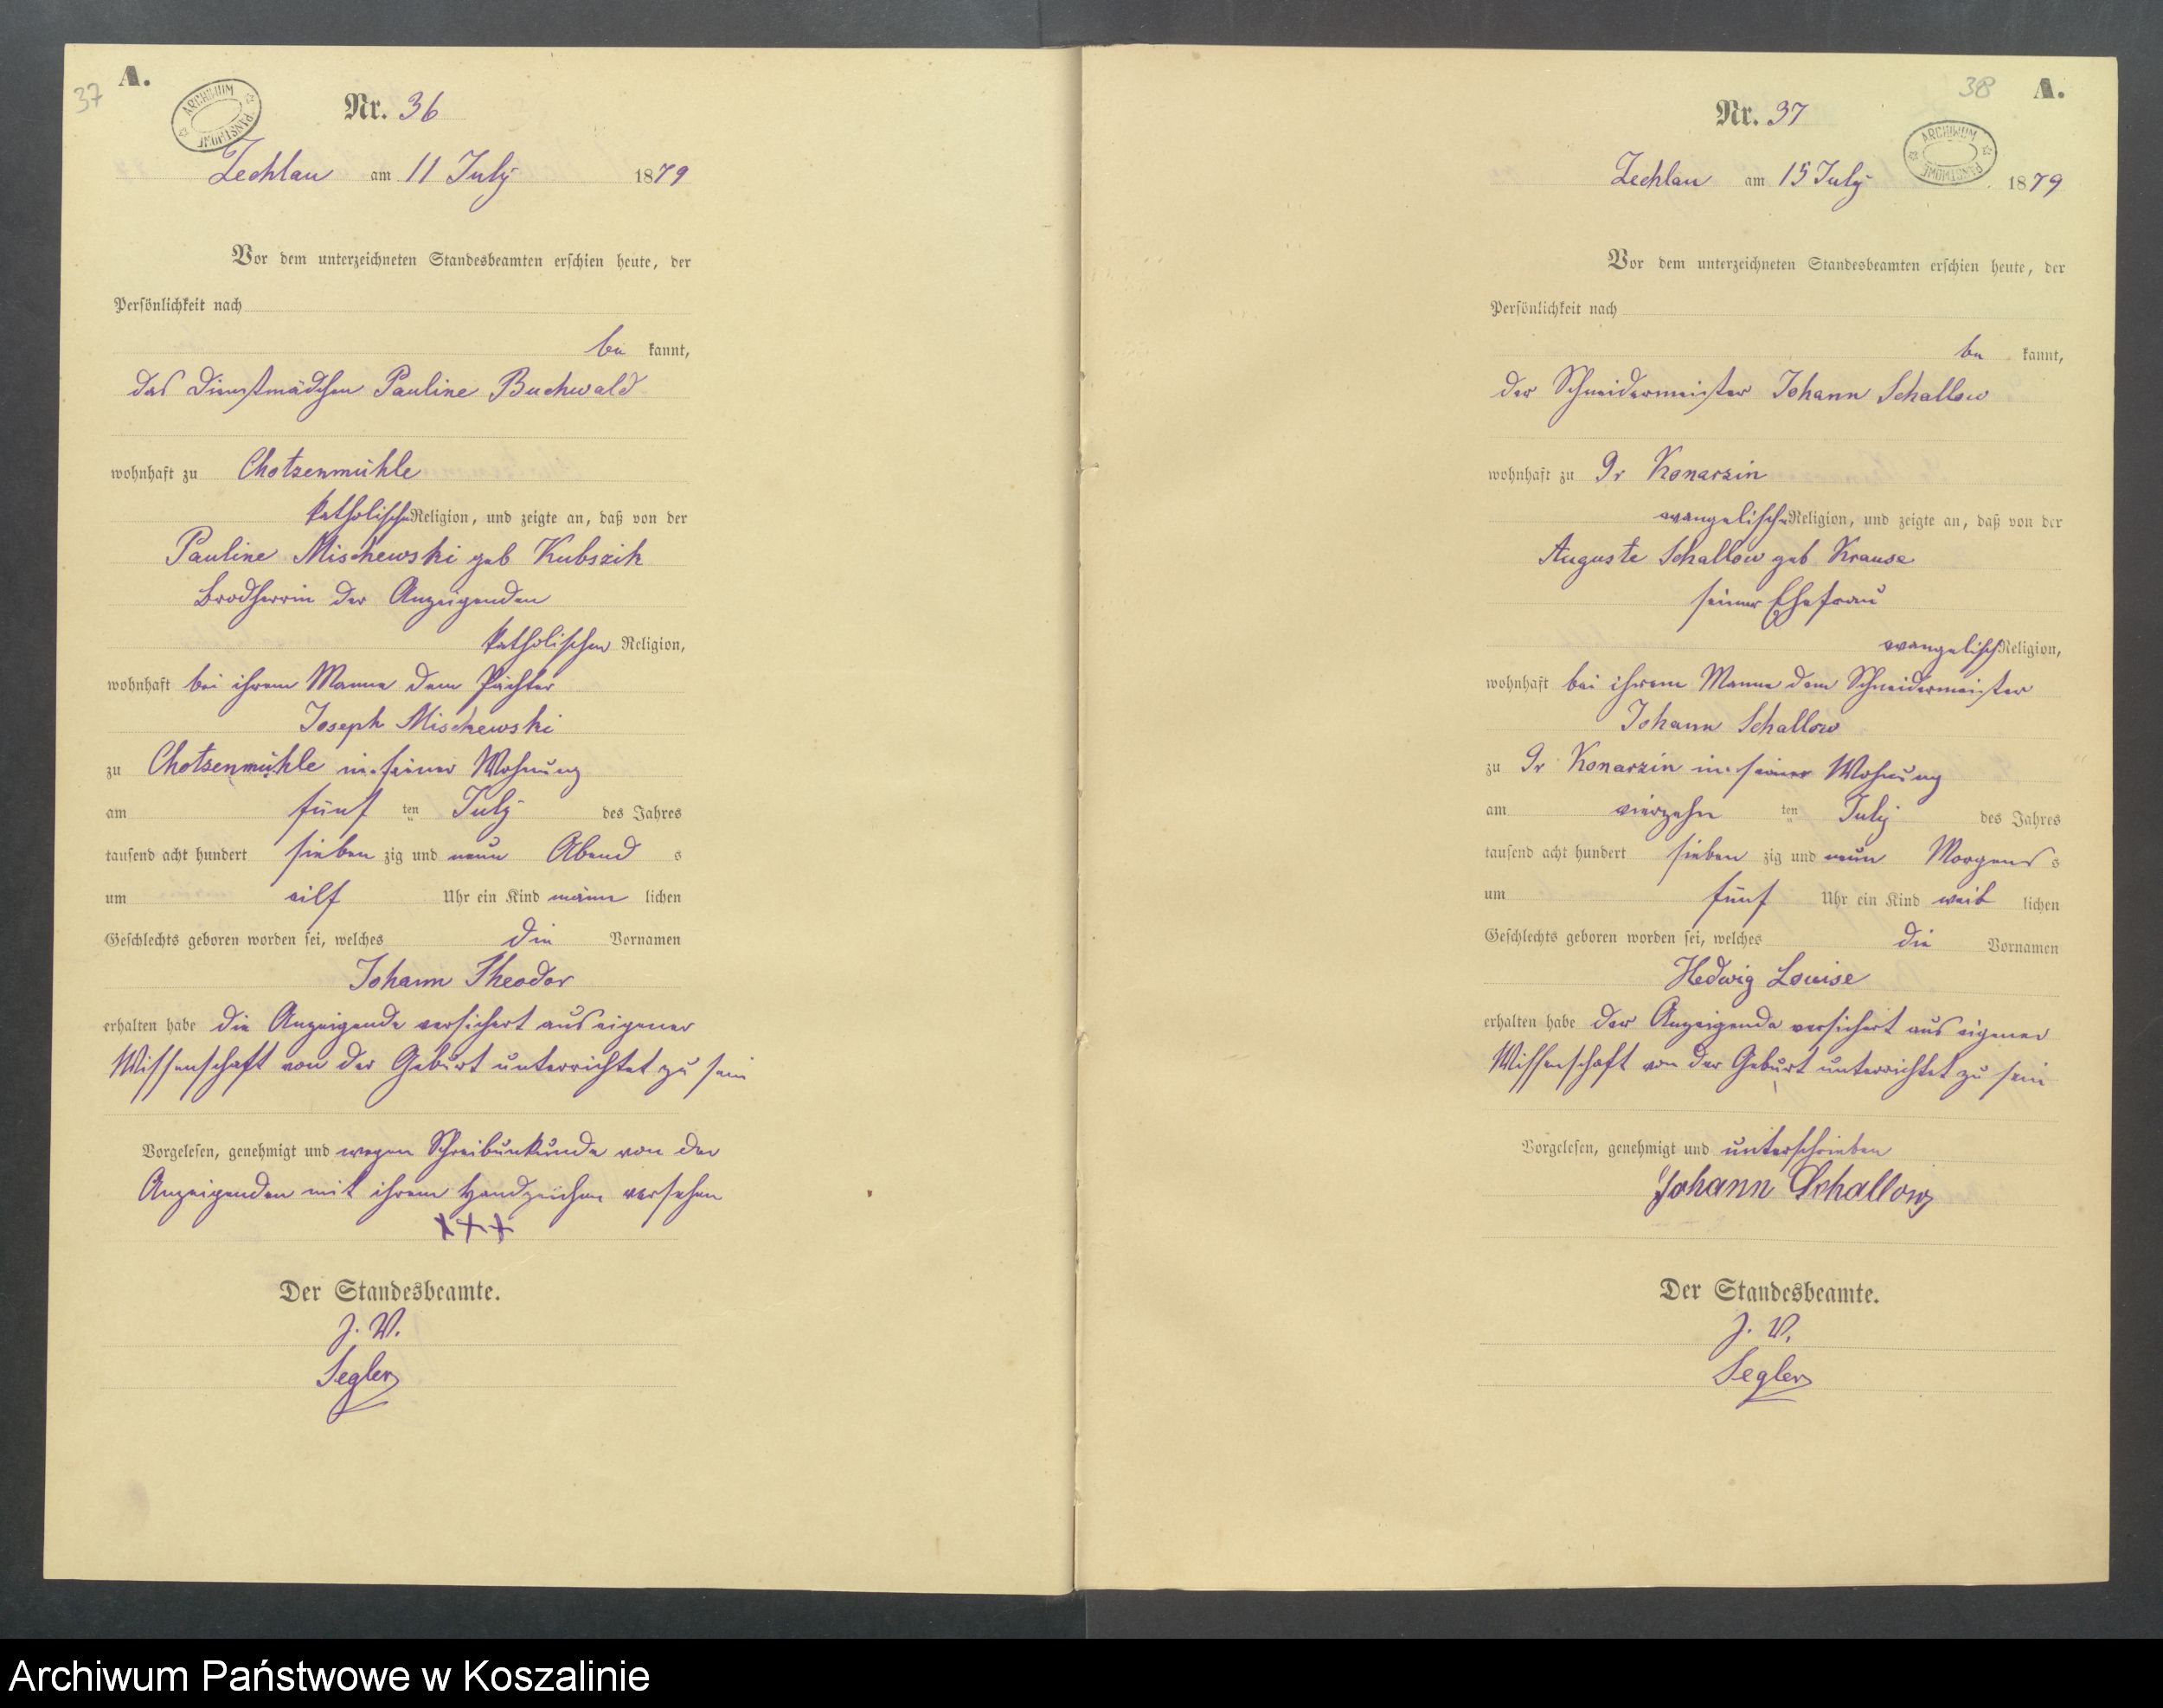 37
A.
ARCHIWUM PAŃSTWOWE
Nr. 36
Zechlau am 11 July 1879
Vor dem unterzeichneten Standesbeamten erschien heute, der
Persönlichkeit nach
be kannt,
das Dienstmädchen Pauline Buchwald
wohnhaft zu Chotzenmühle
katholischer Religion, und zeigte an, daß von der
Pauline Mischewski geb Kubszik
Brodherrin der Anzeigenden
katholischen Religion,
wohnhaft bei ihrem Manne dem Pächter
Joseph Mischewski
zu Chotzenmühle in seiner Wohnung
am fünf ten July des Jahres
tausend acht hundert sieben zig und neun Abend s
um eilf Uhr ein Kind männ lichen
Geschlechts geboren worden sei, welches die Vornamen
Johann Theodor
erhalten habe die Anzeigende versichert aus eigener
Wissenschaft von der Geburt unterrichtet zu sein
Vorgelesen, genehmigt und wegen Schreibunkunde von der
Anzeigenden mit ihrem Handzeichen versehen
XXX
Der Standesbeamte.
J. V.
Segler
38
A.
ARCHIWUM PAŃSTWOWE
Nr. 37
Zechlau am 15 July 1879
Vor dem unterzeichneten Standesbeamten erschien heute, der
Persönlichkeit nach
be kannt,
der Schneidermeister Johann Schallow
wohnhaft zu Gr Konarzin
evangelischer Religion, und zeigte an, daß von der
Auguste Schallow geb Krause
seiner Ehefrau
evangelisch Religion,
wohnhaft bei ihrem Manne dem Schneidermeister
Johann Schallow
zu Gr Konarzin in seiner Wohnung
am vierzehn ten July des Jahres
tausend acht hundert sieben zig und neun Morgens s
um fünf Uhr ein Kind weib lichen
Geschlechts geboren worden sei, welches die Vornamen
Hedwig Louise
erhalten habe der Anzeigende versichert aus eigener
Wissenschaft von der Geburt unterrichtet zu sein
Vorgelesen, genehmigt und unterschrieben
Johann Schallow
Der Standesbeamte.
J. V.
Segler
Archiwum Państwowe w Koszalinie